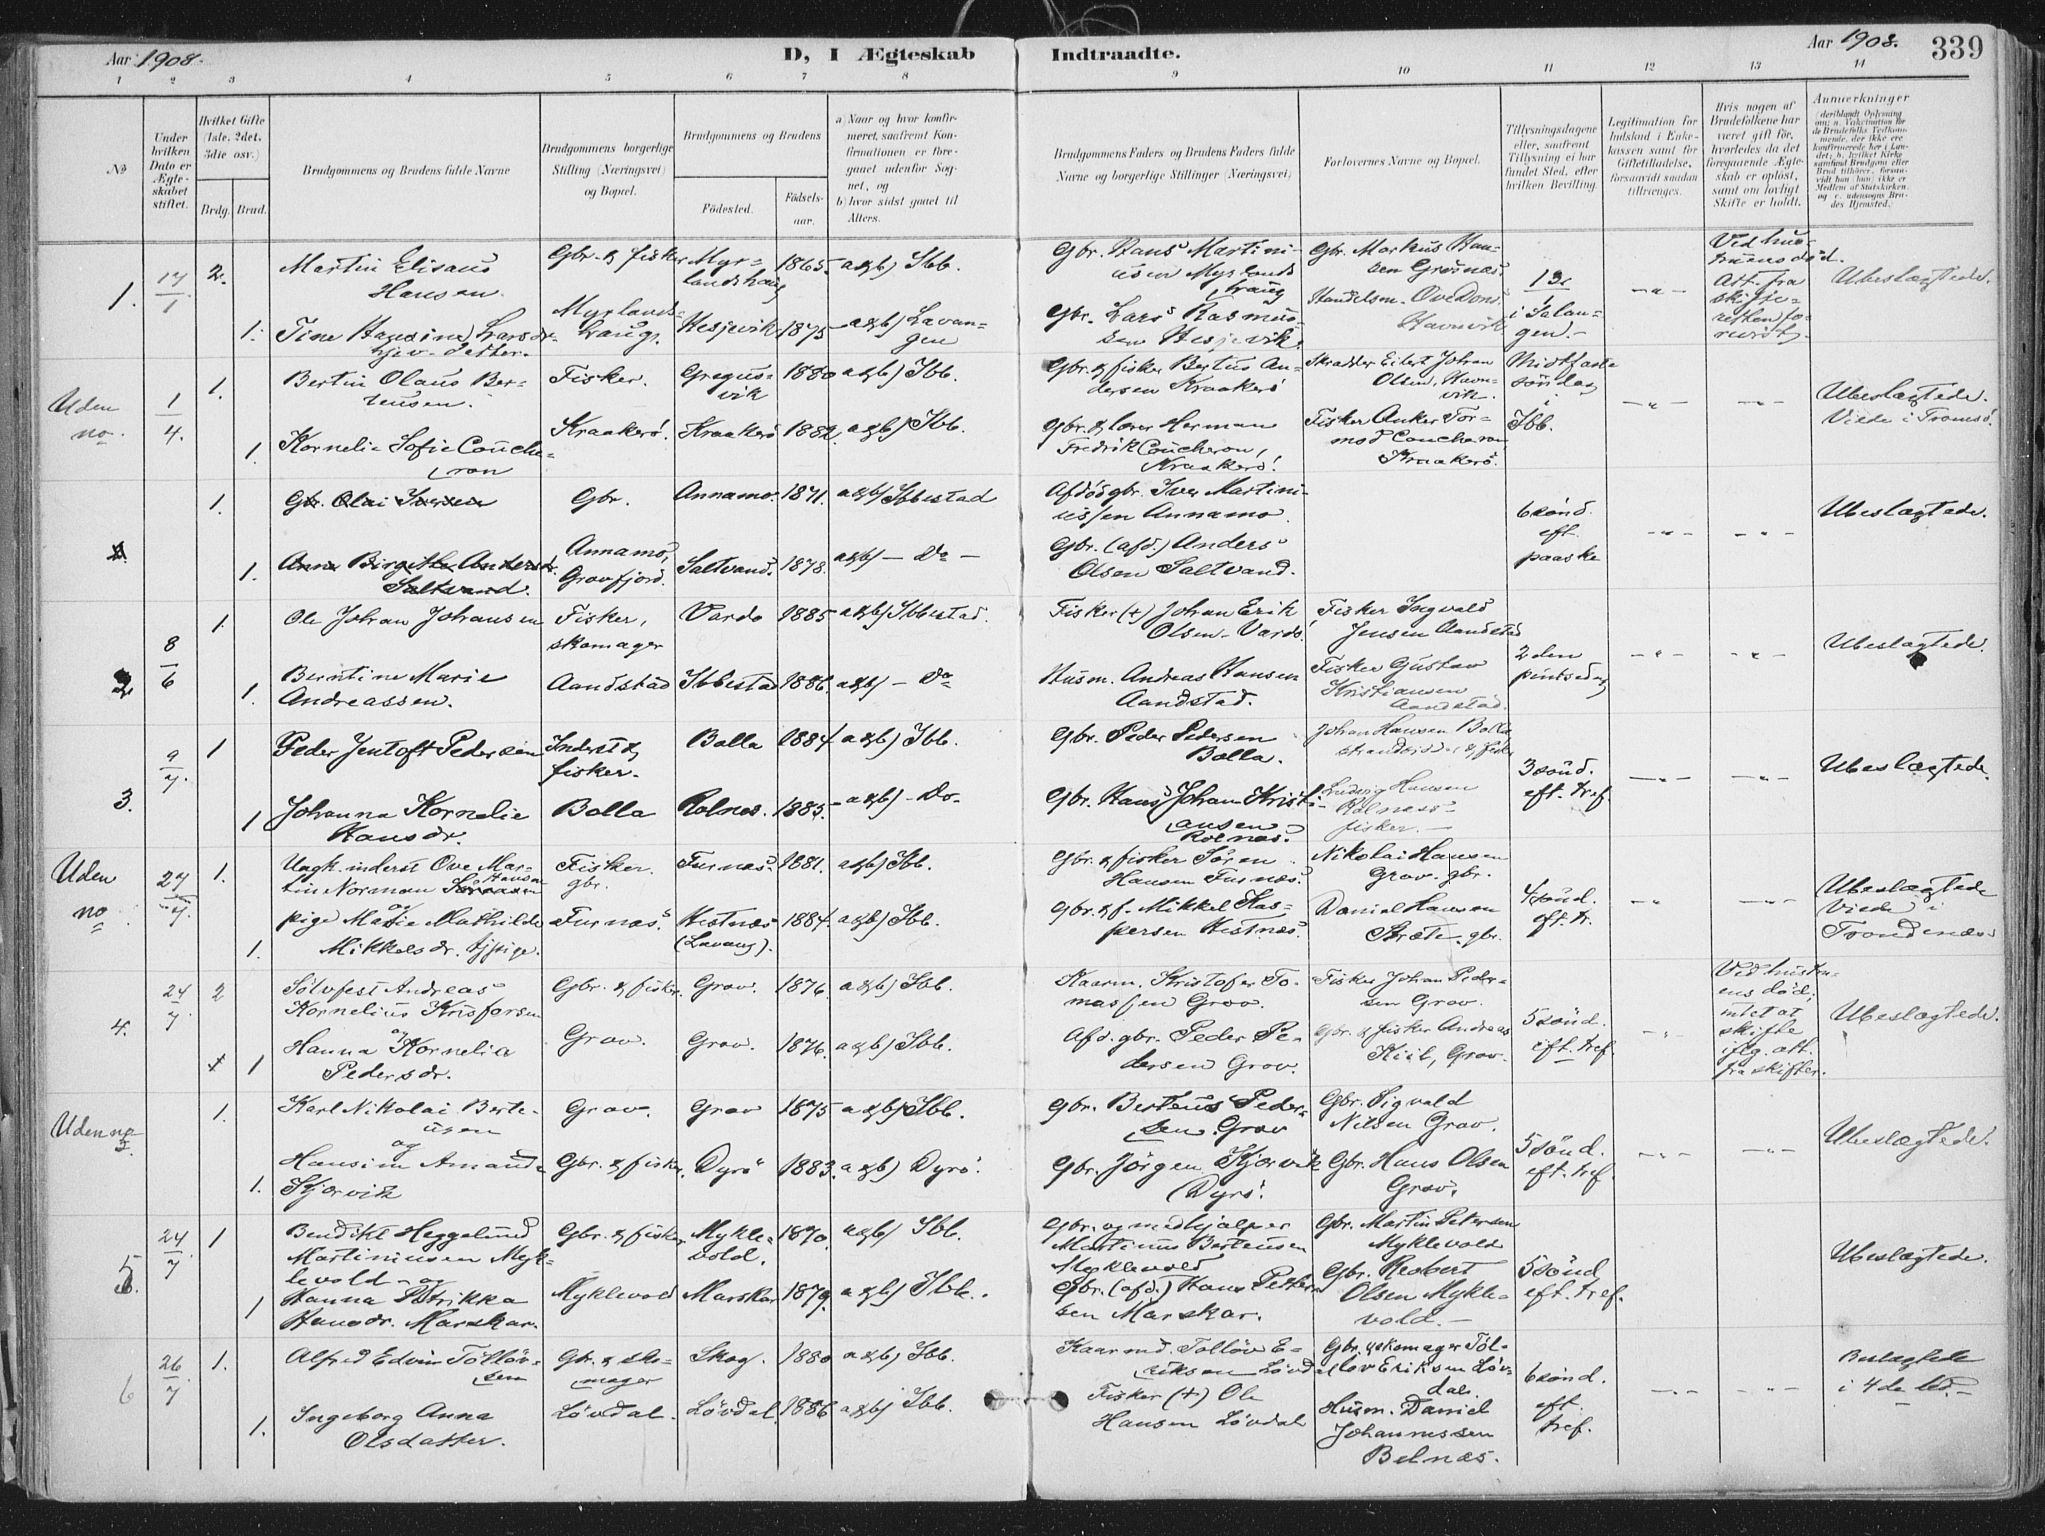 Aar 1908.
D, I Ægteskab Indtraadte.
Aar 1908. 339
1 2 3 4 5 6 7 8 9 10 11 12 13 14
No
Under hvilken Dato er Ægteskabet stiftet.
Hvilket Gifte (1ste, 2det, 3die osv.)
Brdg. Brud.
Brudgommens og Brudens fulde Navne
Brudgommens borgerlige Stilling (Næringsvei) og Bopæl.
Brudgommens og Brudens
Fødested. Fødselsaar.
a) Naar og hvor konfirmeret, saafremt Konfirmationen er foregaaet udenfor Sognet, og
b) hvor sidst gaaet til Alters.
Brudgommens Faders og Brudens Faders fulde Navne og borgerlige Stillinger (Næringsvei)
Forlovernes Navne og Bopæl.
Tillysningsdagene eller, saafremt Tillysning ei har fundet Sted, efter hvilken Bevilling.
Legitimation for Indskud i Enkekassen samt for Giftetilladelse, forsaavidt saadan tiltrænges.
Hvis nogen af Brudefolkene har været gift før, hvorledes da det foregaaende Ægteskab er opløst, samt om lovligt Skifte er holdt.
Anmerkninger
1. 17/1 2. Martin Elisæus Hansen. Gbr. & fisker Myrlandshaug 1865. a&b) Ibb. Gbr. Hans Martiniusen Myrlandshaug Gbr. Markus Hansen Grøsnæs.
1. Tine Hansine Larsdr. Myrlandshaug. Hesjevik 1875 a&b) Lavangen Gbr. Lars Rasmussen Hesjevik. Handelsm. Ove Dons Havnvik
i Salangen.
Ubeslægtede.
Uden no. 1/4. 1. Bertin Olaus Berteusen. Fisker. Gregusvik 1880 a&b) Ibb. Gbr. & fisker Bertus Andersen Kraakerø Skrædder Eilert Johan Olsen, Havnvik. Midtfastesøndag i Ibb.
1. Kornelie Sofie Coucheron Kraakerø. Kraakerø 1882. a&b) Ibb. Gbr. & lærer Herman Fredrik Coucheron, Kraakerø. Fisker Anker Tormod Coucheron Kraakerø.
Ubeslægtede. Viede i Tromsø.
1. Gbr. Olai Iversen Gbr. Annamo. 1871. a&b) Ibbestad Afdød gbr. Iver Martiniussen Annamo. 6 sønd. eft. paaske
1. Anna Birgitte Andersdr. Saltvand. Annamo, Gravfjord. Saltvand. 1878. a&b) – Do – Gbr. (afd.) Anders Olsen Saltvand.
Ubeslægtede.
2 8/6 1. Ole Johan Johansen Fisker, skomager Vardø 1885 a&b) Ibbestad. Fisker (+) Johan Erik Olsen Vardø. Fisker Ingvald Jensen Aandstad 2den pintsedag
1. Berntine Marie Andreassen. Aandstad Ibbestad 1886. a&b) – Do Husm. Andreas Hansen Aandstad. Fisker Gustav Kristiansen Aandstad.
Ubeslægtede.
3. 9/7. 1 Peder Jentoft Pedersen Inderst & fisker. Bolla 1884 a&b) Ibb. Gbr. Peder Pedersen Bolla. Johan Hansen Bolla
1 Johanna Kornelie Hansdr. Bolla Rolnæs. 1885. a&b) – Do. Gbr. Hans Johan Kristiansen Rolnæs. Ludvig Hansen Rolnæs fisker.
3 sønd. eft. tref. Ubeslægtede.
Uden no. 27/7. 1. Ungk. inderst Ove Martin Norman Hansen og Fisker gbr. Furnæs. 1881. a&b) Ibb. Gbr. & fisker Søren Hansen Furnæs. Nikolai Hansen Grov. gbr.
1. pige Marie Mathilde Mikkelsdr. Furnæs. Hestnæs (Lavang). 1884. a&b) Ibb. Gbr. & f. Mikkel Kaspersen Hestnæs. Daniel Hansen Stræte. gbr.
4 sønd. eft. tr. Ubeslægtede Viede i Trondenæs
4. 24/7. 2 Sølvfest Andreas Kornelius Krisforsen og Gbr. & fisker. Grov. 1876. a&b) Ibb. Kaarm. Kristofer Tomassen Grov. Fisker Johan Pedersen Grov.
1 Hanna Kornelia Pedersdr. Grov. Grov. 1876. a&b) Ibb. Afd. gbr. Peder Pedersen Grov. Gbr. & fisker Andreas Kiil, Grov.
5 sønd. eft. tref. Ved hustruens død; intet at skifte iflg. att. fra skifter. Ubeslægtede.
Uden no. 1. Karl Nikolai Berteusen og Grov. Grov 1875 a&b) Ibb. Gbr. Berteus Pedersen Grov Gbr. Sigvald Nilsen Grov.
1. Hansine Amanda Kjørvik Gbr. & fisker. Dyrø 1883. a&b) Dyrø. Gbr. Jørgen Kjørvik Dyrø. Gbr. Hans Olsen Grov.
5 sønd. eft. tref. Ubeslægtede.
5. 24/7 1 Bendikt Heggelund Martiniusen Myklevold og Gbr. & fisker Myklevold. 1870. a&b) Ibb. Gbr. og medhjælper Martinus Berteusen Myklevold Gbr. Martin Petersen Myklevold
1 Hanna Petrikka Hansdr. Marskar. Myklevold Marskar 1879. a&b) Ibb. Gbr. (afd.) Hans Pettersen Marskar. Gbr. Robert Olsen Myklevold.
5 sønd eft. tref. Ubeslægtede.
6 26/7 1. Alfred Edvin Tølløvsen Gbr. & skomager Skog. 1880 a&b) Ibb. Kaarmd. Tølløv Eriksen Løvdal Gbr. & skomager Tølløv Eriksen Løvdal.
1. Ingeborg Anna Olsdatter. Løvdal. Løvdal. 1886 a&b) Ibb. Fisker (+) Ole Hansen Løvdal Husm. Daniel Johannessen Belnæs.
6 sønd. eft. tref. Beslægtede i 4de led.